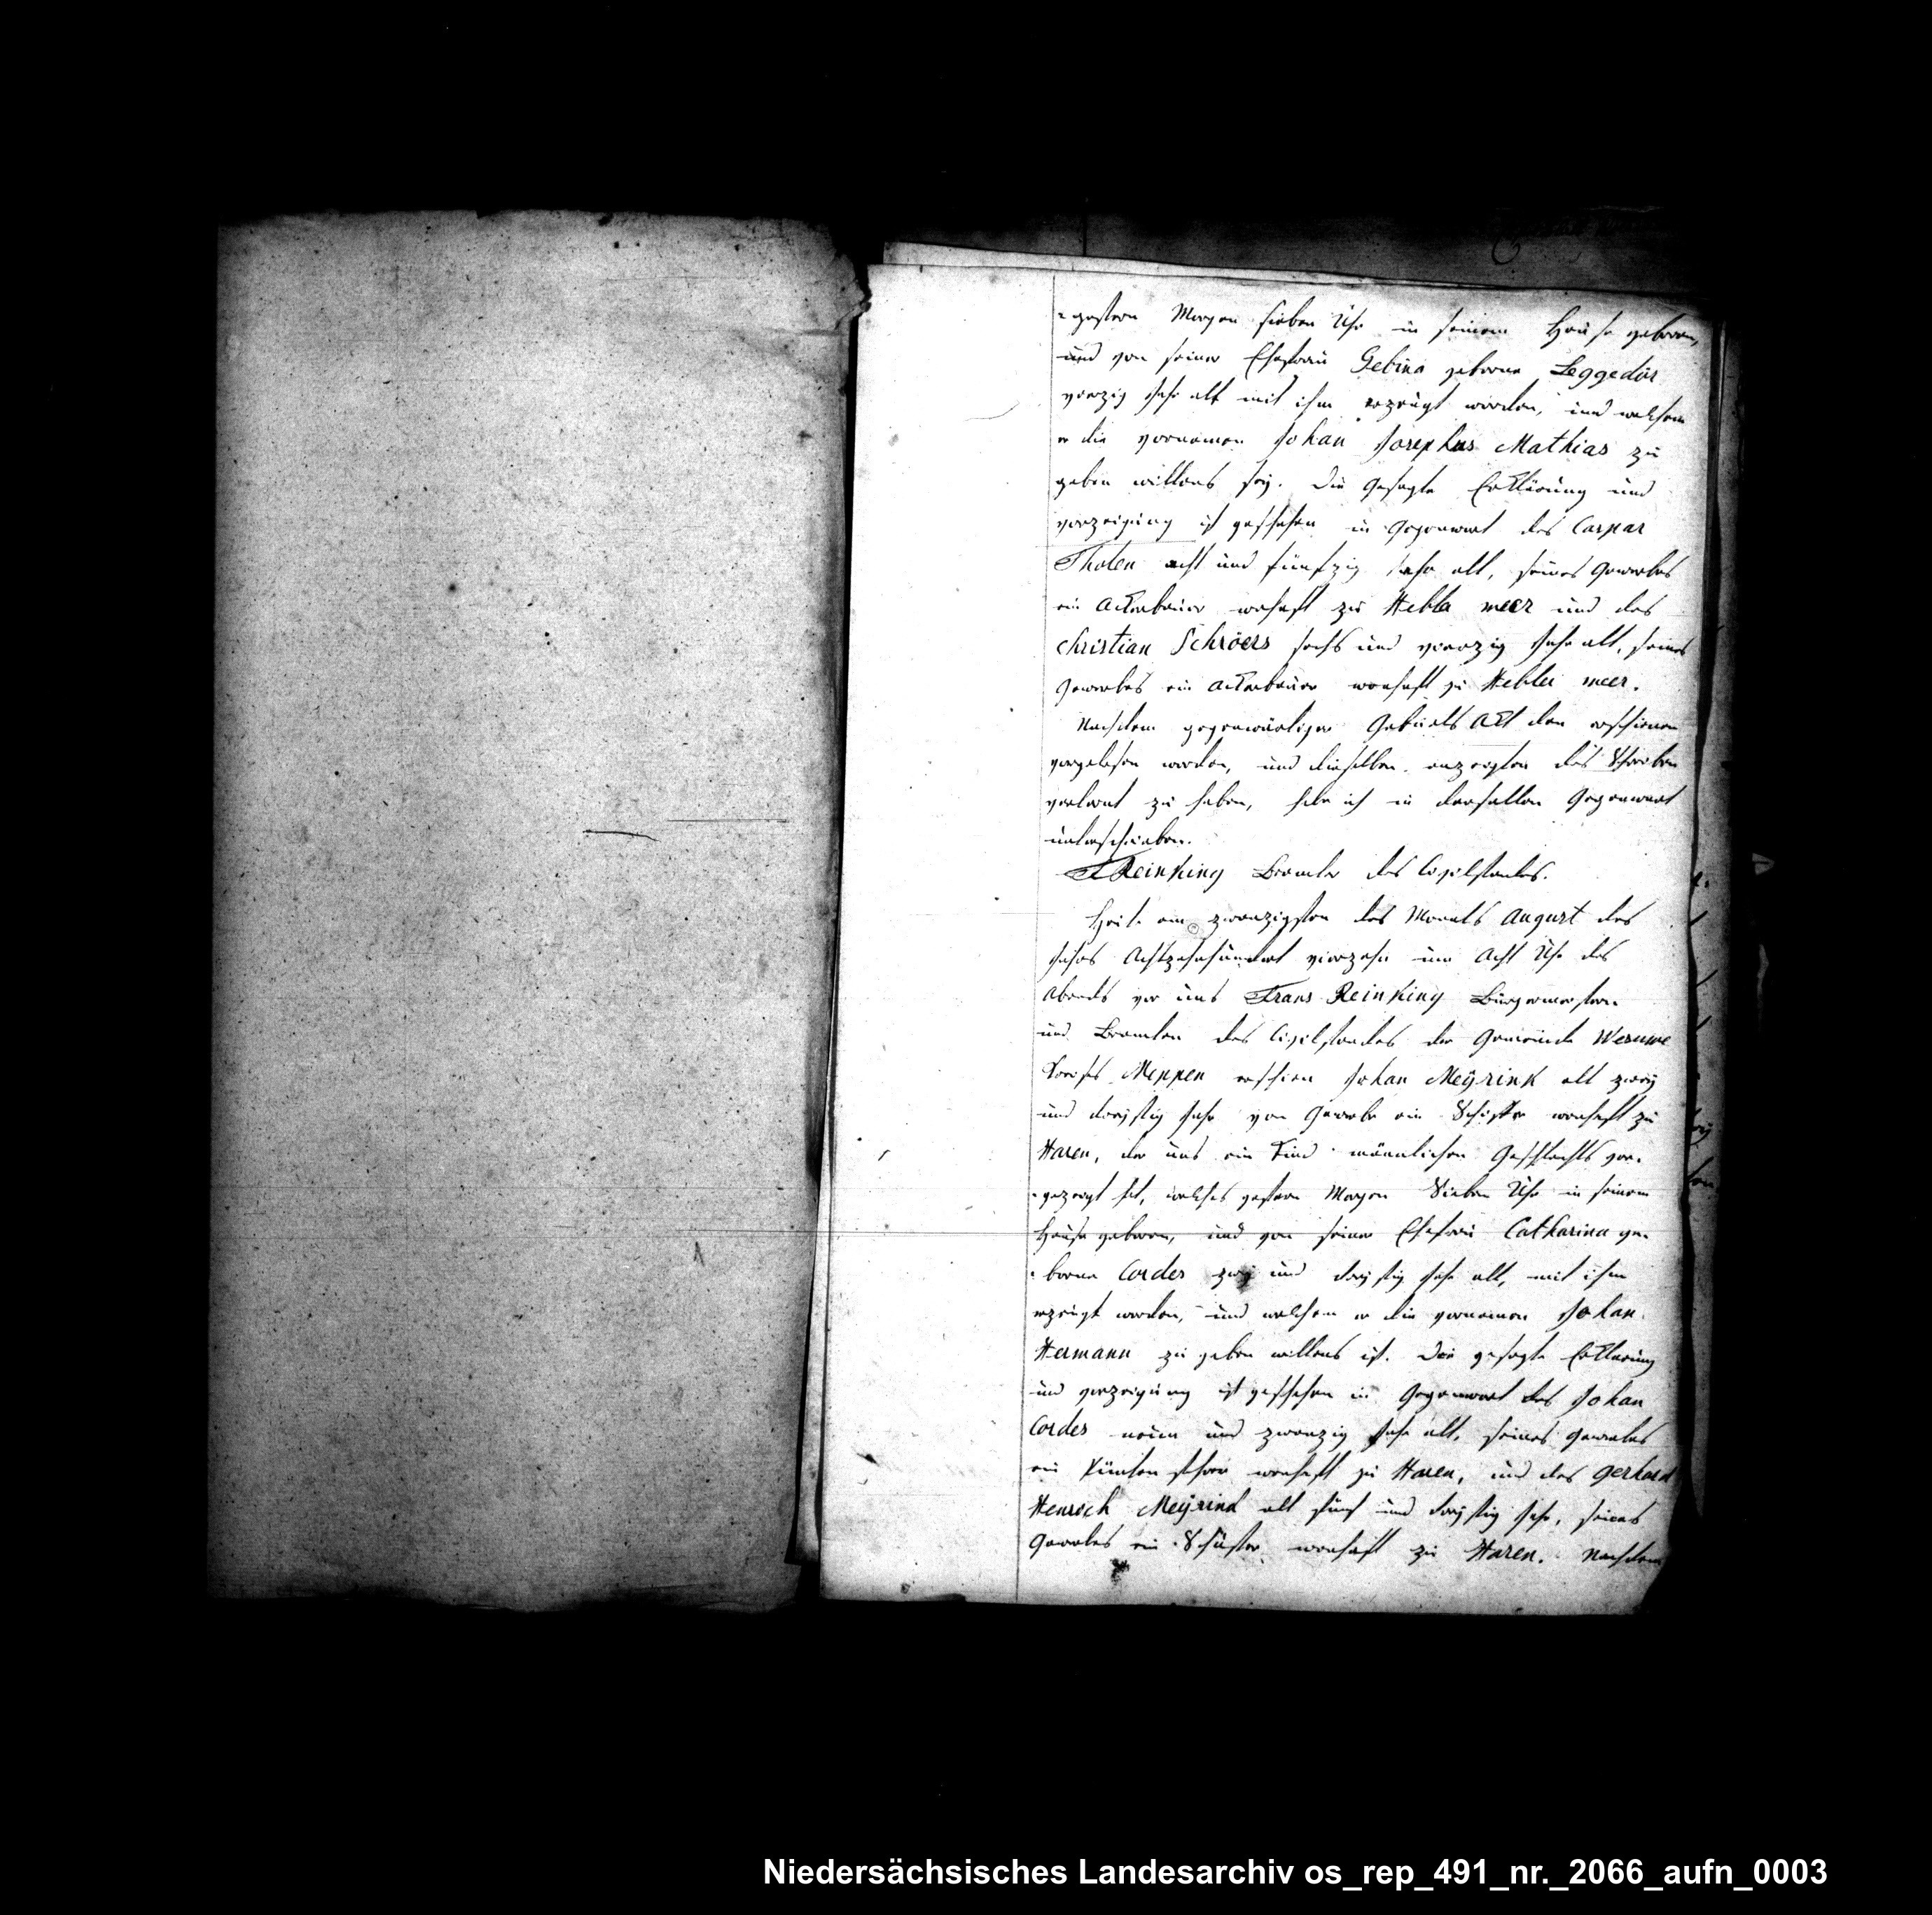 gestern Morgen sieben Uhr in seinem Hause geboren,
und von seiner Ehefrau Gebina geborne Leggedör
vierzig Jahr alt mit ihm erzeugt worden, und welchem
er die vornamen Johan Josephus Mathias zu
geben willens sey. Die gesagte Erklärung und
vorzeigung ist geschehen in Gegenwart des Caspar
Tholen acht und fünfzig Jahr alt, seines Gewerbes
ein Ackerbauer wohaft zu Hebla meer und des
Christian Schröers sechs und vierzig Jahr alt, seines
Gewerbes ein Ackerbauer wonhaft zu Hebler meer.
Nachdem gegenwärtiger Geburts Akt den erschienen
vorgelesen worden, und dieselben anzeigten das Schreiben
verlernt zu haben, habe ich in derselben Gegenwart
unterschrieben.
F Reinking Beamter des Civilstandes.
Heute am zwanzigsten des Monats August des
Jahres Achtzehnhundert vierzehn um Acht Uhr des
Abends vor uns Frans Reinking Bürgermeistern
und Beamten des Civilstandes der Gemeinde Wesuwe
Kreises Meppen erschien Johan Meÿrink alt zweÿ
und dreyßig Jahr von Gewerbe ein Schiffer wonhaft zu
Haren, der uns ein Kind männlichen Geschlechts vor-
-gezeigt hat, welches gestern Morgen Sieben Uhr in seinem
Hause geboren, und von seiner Ehefrau Catharina ge-
-borne Cordes zweÿ und dreyßig Jahr alt, mit ihm
erzeugt worden, und welchem er die vornamen Johan
Hermann zu geben willens ist. Die gesagte Erklärung
und vorzeigung ist geschehen in Gegenwart des Johan
Cordes neun und zwanzig Jahr alt, seines Gewerbes
ein wonhaft zu Haren, und des Gerhard
Henrich Meÿrink alt fünf und dreyßig Jahr, seines
Gewerbes ein Schuster wonhaft zu Haren. Nachdem
Niedersächsisches Landesarchiv os_rep_491_nr._2066_aufn_0003